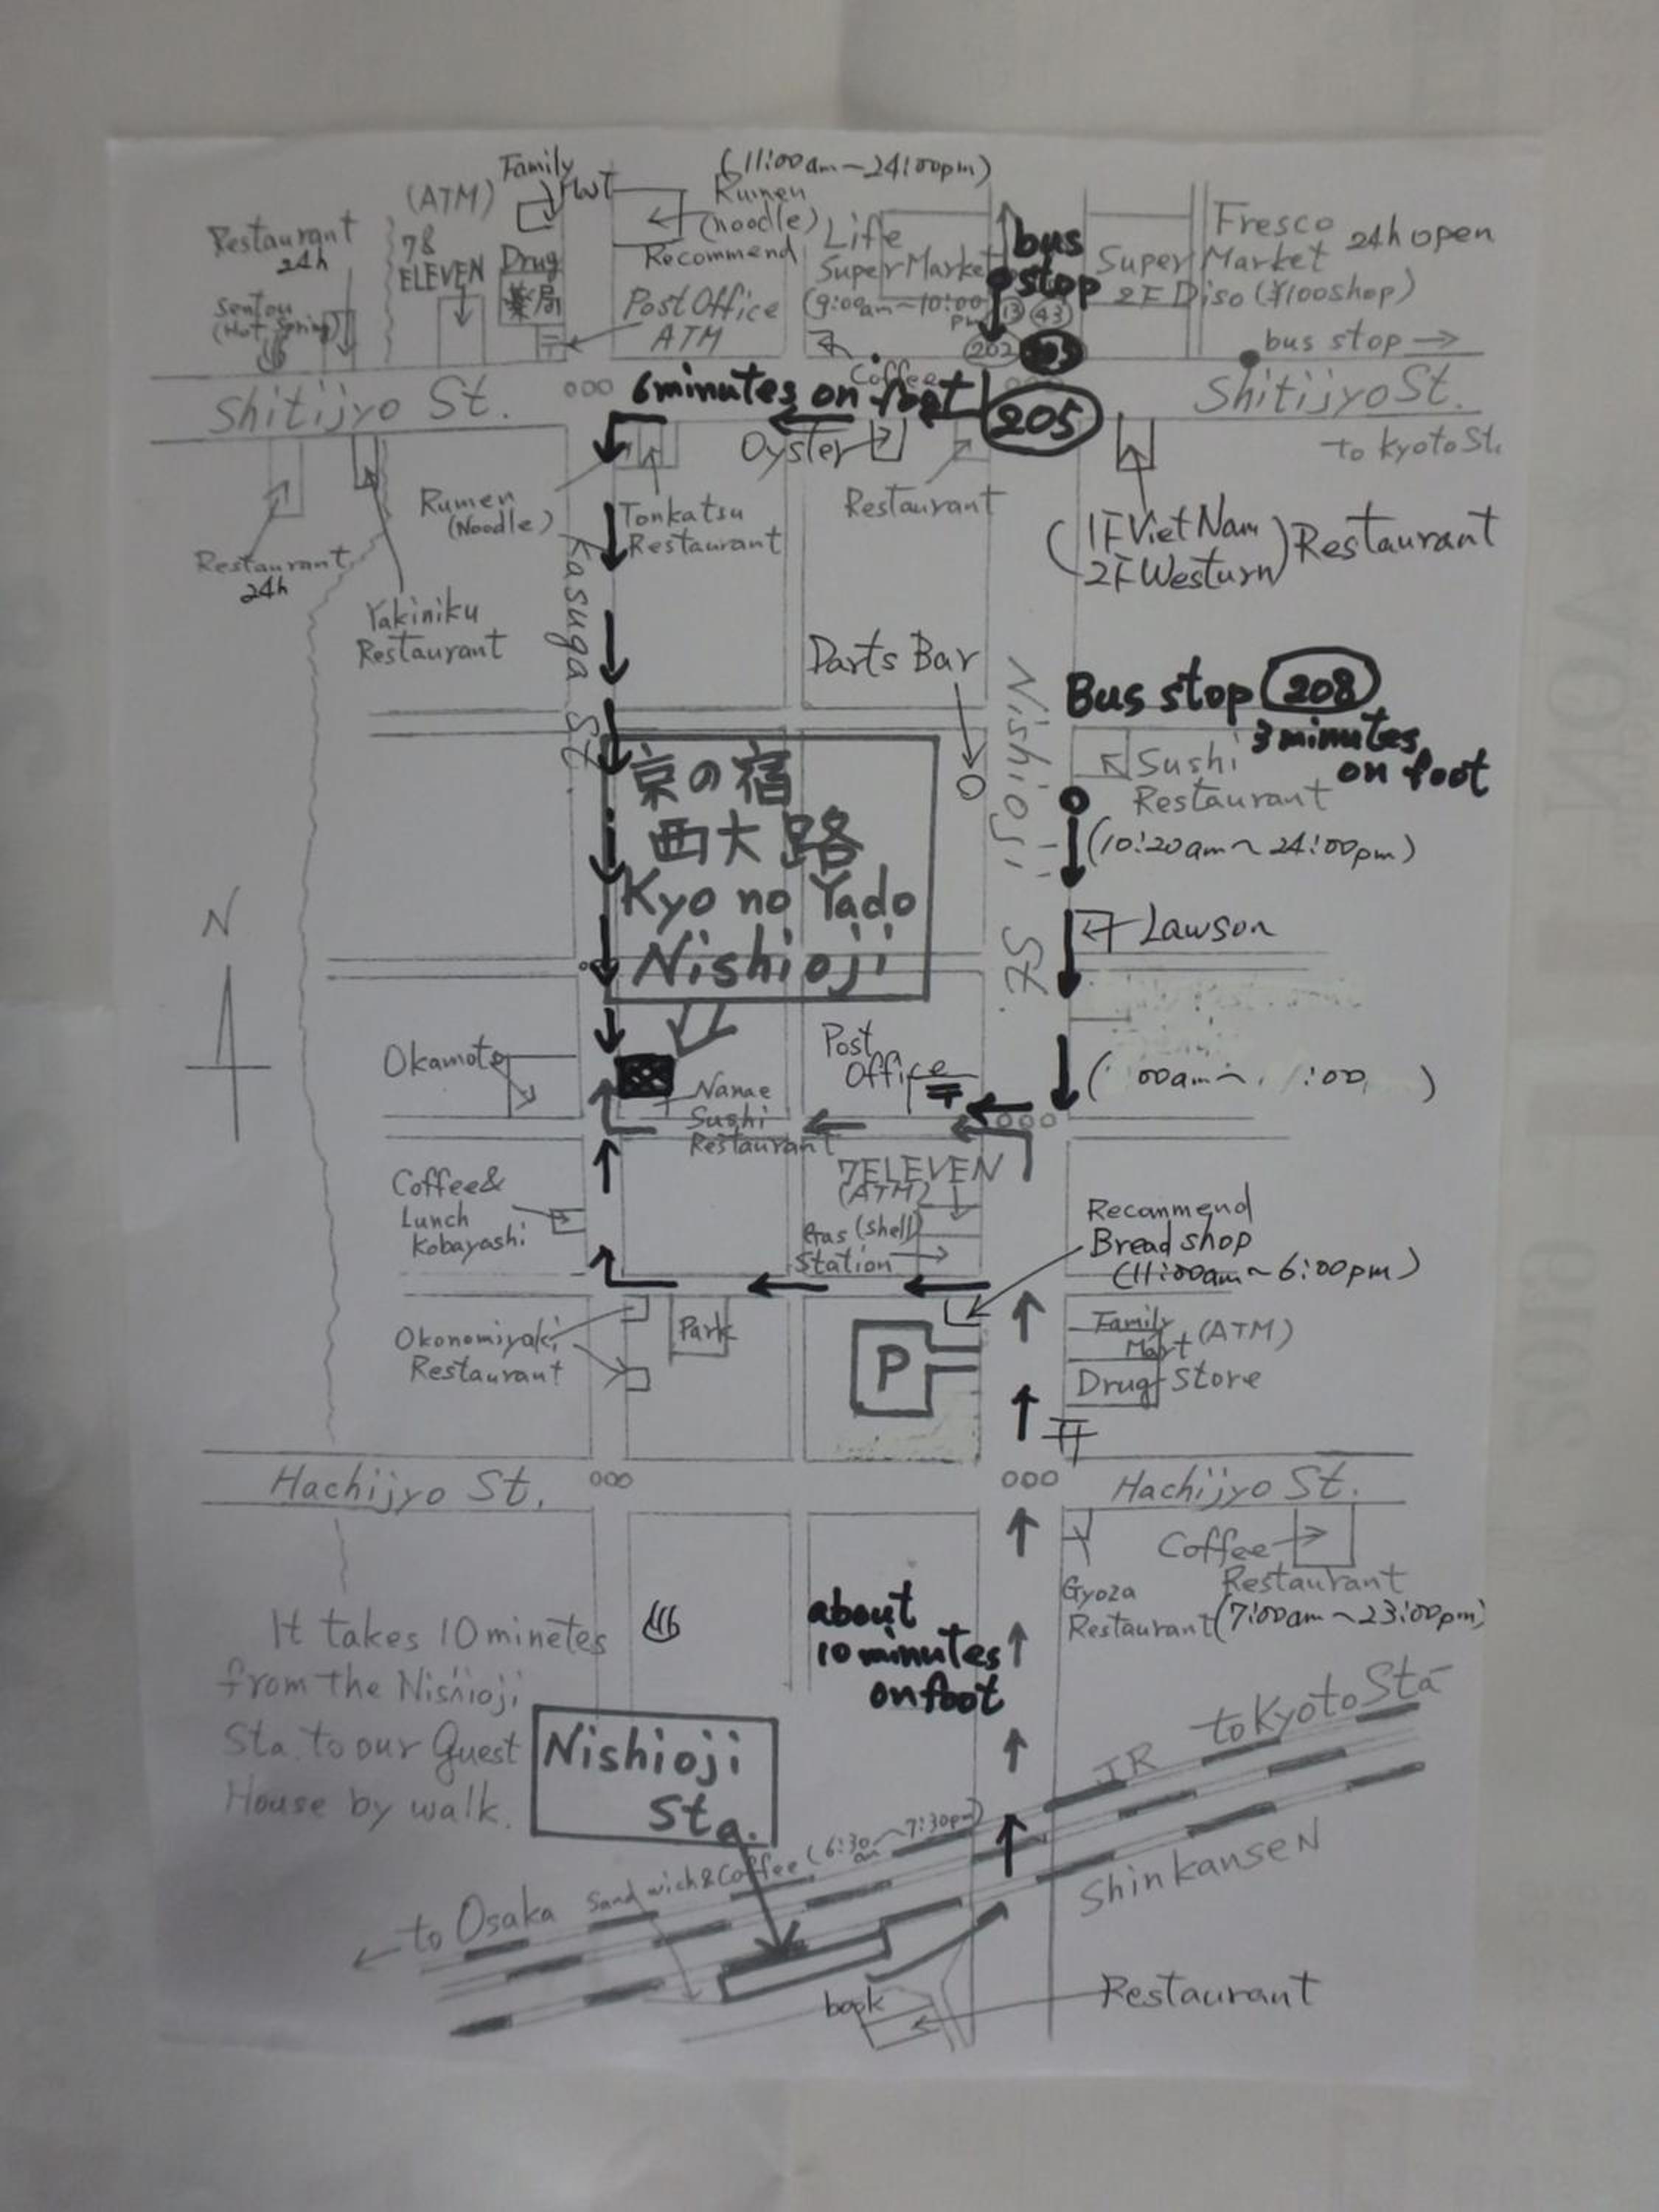 Family
Mart
(11:00am~24:00pm)
(ATM)
Rumen
(noodle)
Recommend
Restaurant
24h
7&
ELEVEN
Drug
薬局
Life
Super Market
(9:00am~10:00
pm)
bus
stop
13
43
202
205
Fresco
24h open
Super Market
2F Diso (¥100shop)
Sentou
(Hot Spring)
Post Office
ATM
〒
Coffee
bus stop →
Shitijyo St.
6 minutes on foot
205
Shitijyo St.
to Kyoto St.
Oyster
Restaurant
Rumen
(Noodle)
Tonkatsu
Restaurant
(1F Viet Nam
2F Westurn) Restaurant
Restaurant
24h
Yakiniku
Restaurant
Kasuga St.
Darts Bar
Nishioji St.
Bus stop 208
3 minutes
on foot
Sushi
Restaurant
(10:20am~24:00pm)
京の宿
西大路
Kyo no Yado
Nishioji
N
Lawson
Okamoto
Post
Office
〒
(00am~ :00 )
Nanae
Sushi
Restaurant
7ELEVEN
(ATM)
Coffee&
Lunch
Kobayashi
Gas (shell)
Station
Recommend
Bread shop
(11:00am~6:00pm)
Okonomiyaki
Restaurant
Park
P
Family
Mart (ATM)
Drug Store
Hachijyo St.
Hachijyo St.
Coffee
Restaurant
(7:00am~23:00pm)
Gyoza
Restaurant
about
10 minutes
on foot
It takes 10 minetes
from the Nishioji
Sta. to our Guest
House by walk.
Nishioji
Sta.
to Kyoto Sta
JR
Shinkansen
Sandwich&Coffee (6:30am~7:30pm)
← to Osaka
book
Restaurant